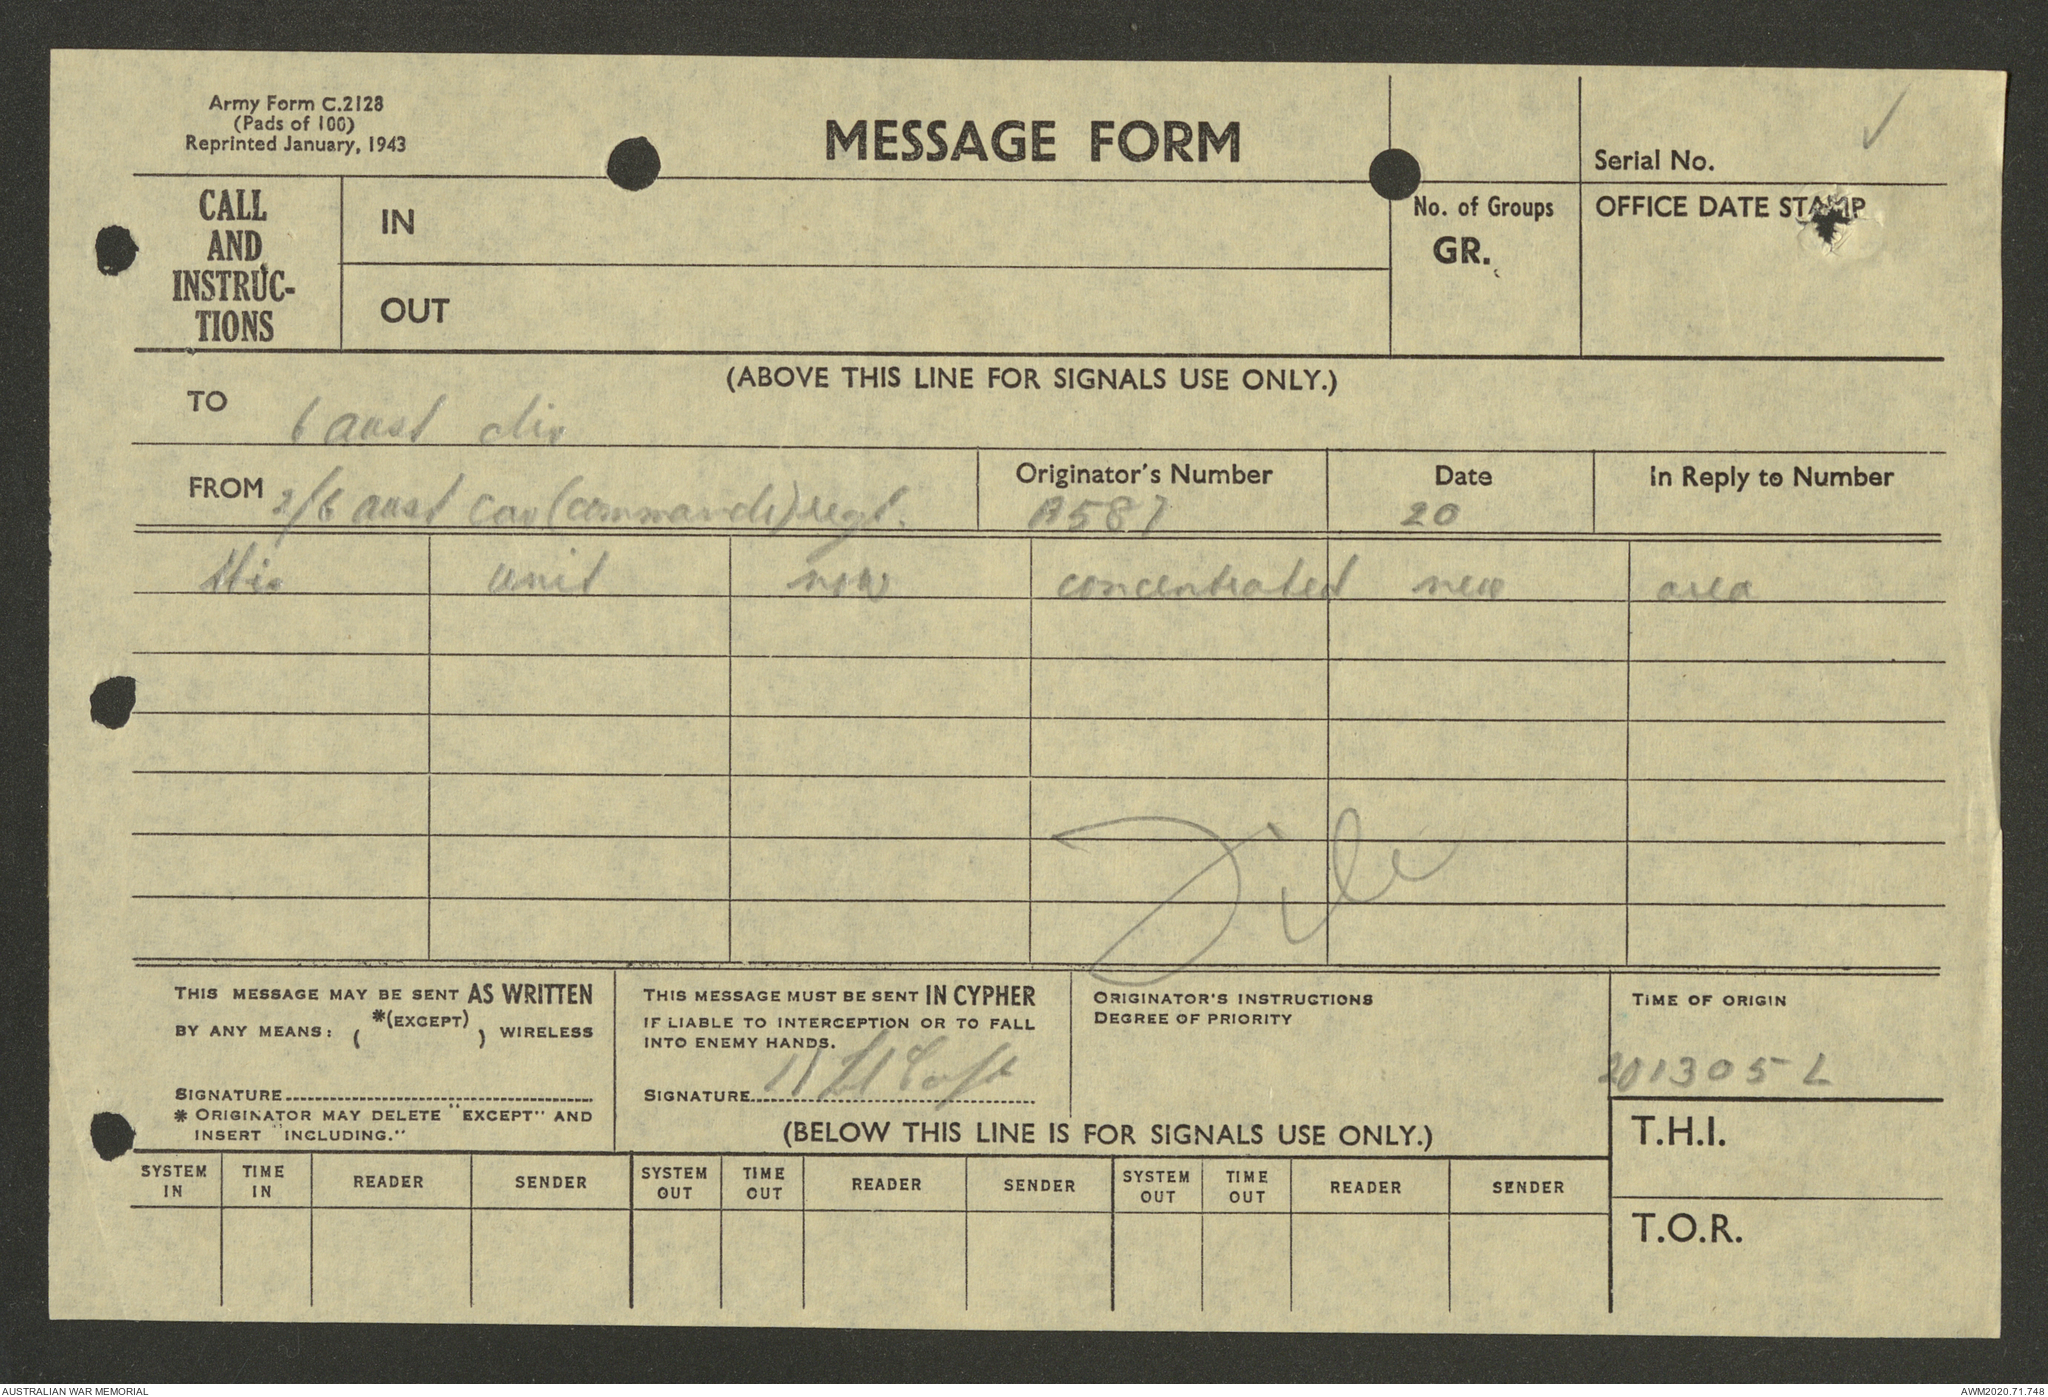 Army Form C.2128
(Pads of 100)
Reprinted January, 1943
MESSAGE FORM
Serial No.
CALL
AND
INSTRUC-
TIONS
IN
OUT
No. of Groups
GR.
OFFICE DATE STAMP
(ABOVE THIS LINE FOR SIGNALS USE ONLY.)
TO 6 aust div
FROM 2/6 aust Cav (commando) regt.
Originator's Number
A587
Date
20
In Reply to Number
this unit now concentrated new area
File
THIS MESSAGE MAY BE SENT AS WRITTEN
BY ANY MEANS: ( *(EXCEPT) ) WIRELESS
SIGNATURE
* ORIGINATOR MAY DELETE "EXCEPT" AND
INSERT "INCLUDING."
THIS MESSAGE MUST BE SENT IN CYPHER
IF LIABLE TO INTERCEPTION OR TO FALL
INTO ENEMY HANDS.
SIGNATURE Capt
ORIGINATOR'S INSTRUCTIONS
DEGREE OF PRIORITY
TIME OF ORIGIN
201305 L
(BELOW THIS LINE IS FOR SIGNALS USE ONLY.)
T.H.I.
T.O.R.
SYSTEM IN TIME IN READER SENDER SYSTEM OUT TIME OUT READER SENDER SYSTEM OUT TIME OUT READER SENDER
AUSTRALIAN WAR MEMORIAL
AWM2020.71.748